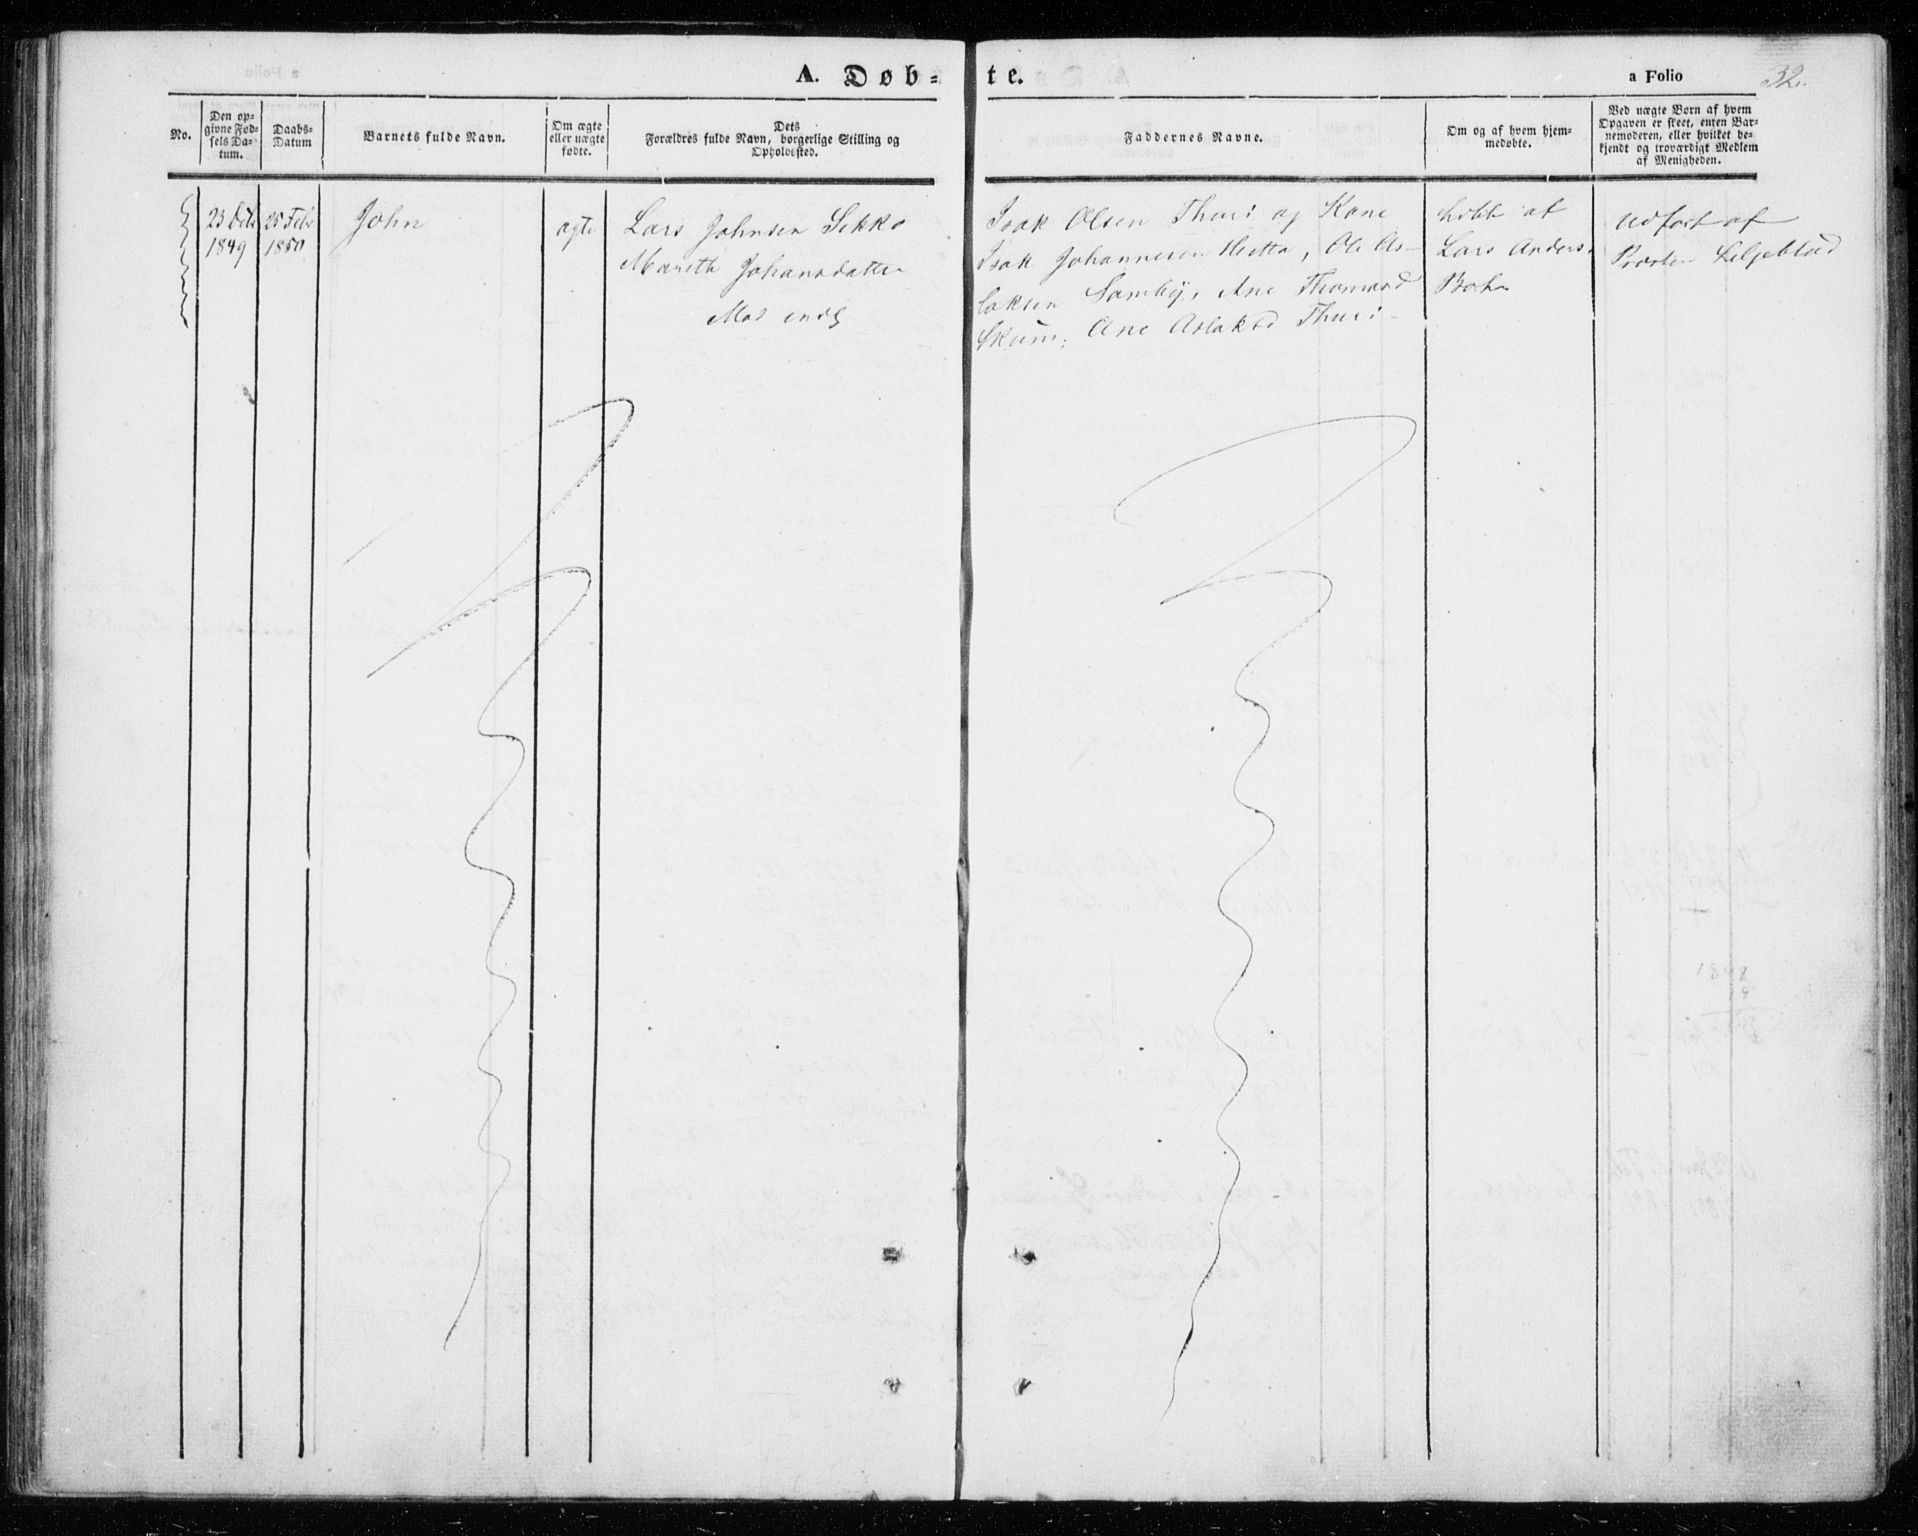 A. Døb-
te.
a Folio
32.
No.
Den op-
givne Fød-
sels Da-
tum.
Daabs-
Datum
Barnets fulde Navn.
Om ægte
eller uægte
fødte.
Dets
Forældres fulde Navn, borgerlige Stilling og
Opholdssted.
Faddernes Navne.
Om og af hvem hjem-
medøbte.
Ved uægte Børn af hvem
Opgaven er skeet, enten Bar-
nemoderen, eller hvilket be-
kjendt og troværdigt Medlem
af Menigheden.
23 Dcb
1849
25 Feb
1850
John
ægte
Lars Johnsen Sekko
Marith Johansdatter
Mas indg
Isak Olsen Thuri og Kone
Isak Johannesen Hætta, Ole As-
laksen Somby, Ane Thomasd
Skum, Ane Aslaksd Thuri
døbt af
Lars Anders.
Bahr
udført af
Præsten Liljeblad